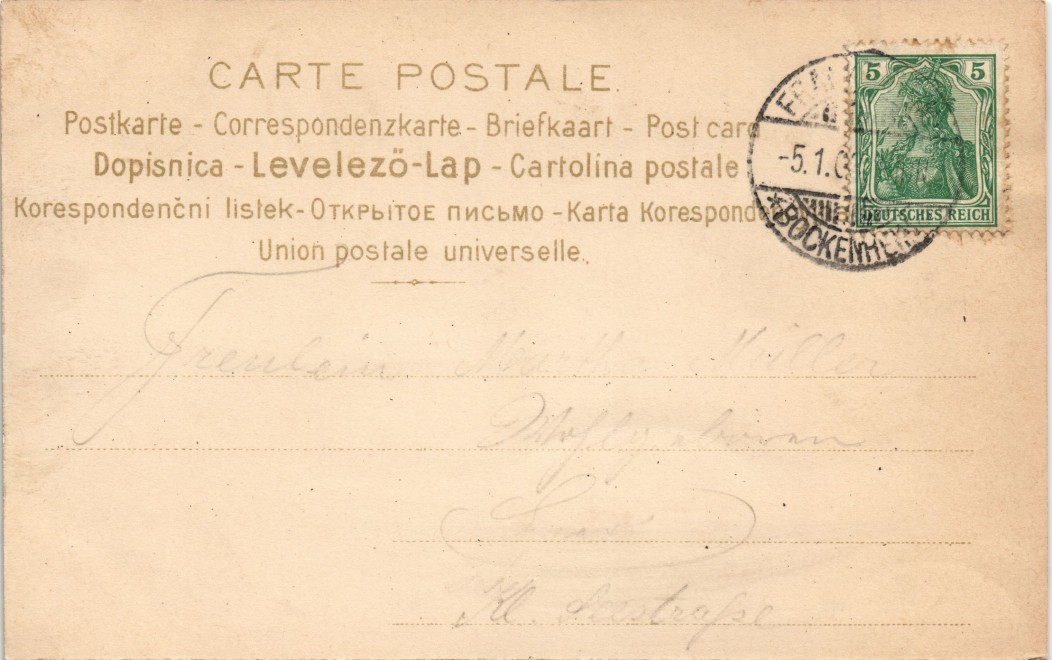 CARTE POSTALE
Postkarte - Correspondenzkarte - Briefkaart - Post card
Dopisnica - Levelező-Lap - Cartolina postale
Korespondenční listek - Открытое письмо - Karta Korespond
Union postale universelle.
5 5
DEUTSCHES REICH
-5.1.0
*BOCKENHEI
Freulein Martha Müller
Wohlgeboren
Kl. Seestraße